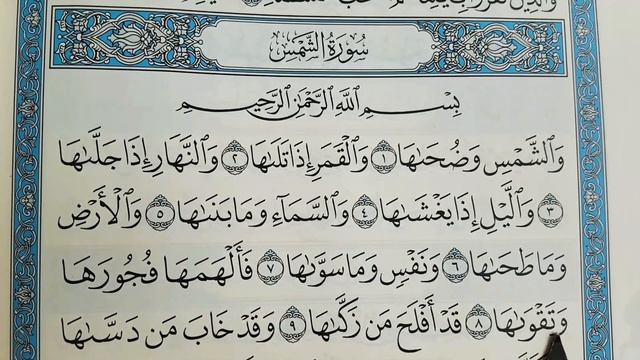 سُورَةُ الشَّمْسِ
بِسْمِ ٱللَّهِ ٱلرَّحْمَٰنِ ٱلرَّحِيمِ
وَٱلشَّمْسِ وَضُحَىٰهَا ١ وَٱلْقَمَرِ إِذَا تَلَىٰهَا ٢ وَٱلنَّهَارِ إِذَا جَلَّىٰهَا
٣ وَٱلَّيْلِ إِذَا يَغْشَىٰهَا ٤ وَٱلسَّمَآءِ وَمَا بَنَىٰهَا ٥ وَٱلْأَرْضِ
وَمَا طَحَىٰهَا ٦ وَنَفْسٍ وَمَا سَوَّىٰهَا ٧ فَأَلْهَمَهَا فُجُورَهَا
وَتَقْوَىٰهَا ٨ قَدْ أَفْلَحَ مَن زَكَّىٰهَا ٩ وَقَدْ خَابَ مَن دَسَّىٰهَا